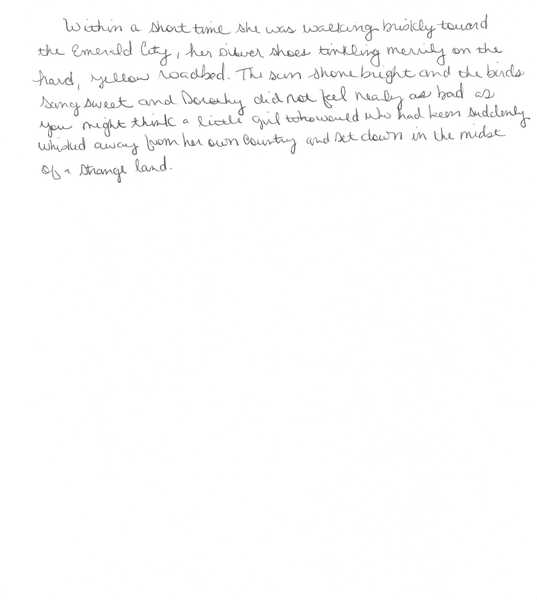 Within a short time she was walking briskly toward
the Emerald City, her silver shoes tinkling merrily on the
hard, yellow roadbed. The sun shone bright and the birds
sang sweet and Dorothy did not feel nearly as bad as
you might think a little girl who had been suddenly
whisked away from her own country and set down in the midst
of a strange land.